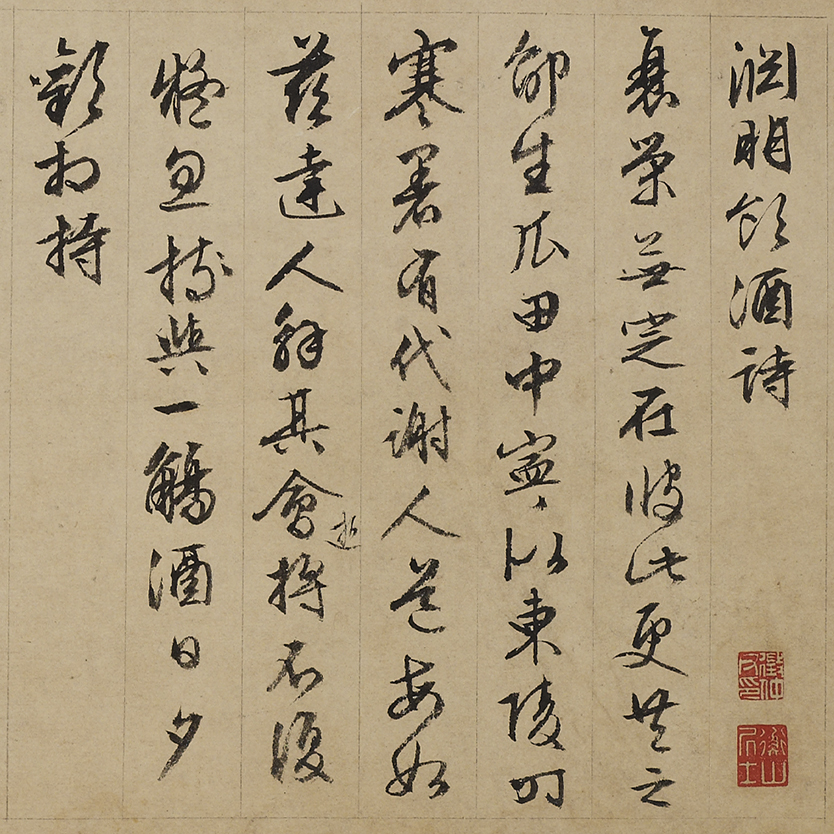 淵明飲酒詩
衰榮無定在彼此更共之
邵生瓜田中寧似東陵時
寒暑有代謝人道每如
茲達人解其會逝將不復
疑忽持與一觴酒日夕
歡相持
徵仲父印
衡山居士